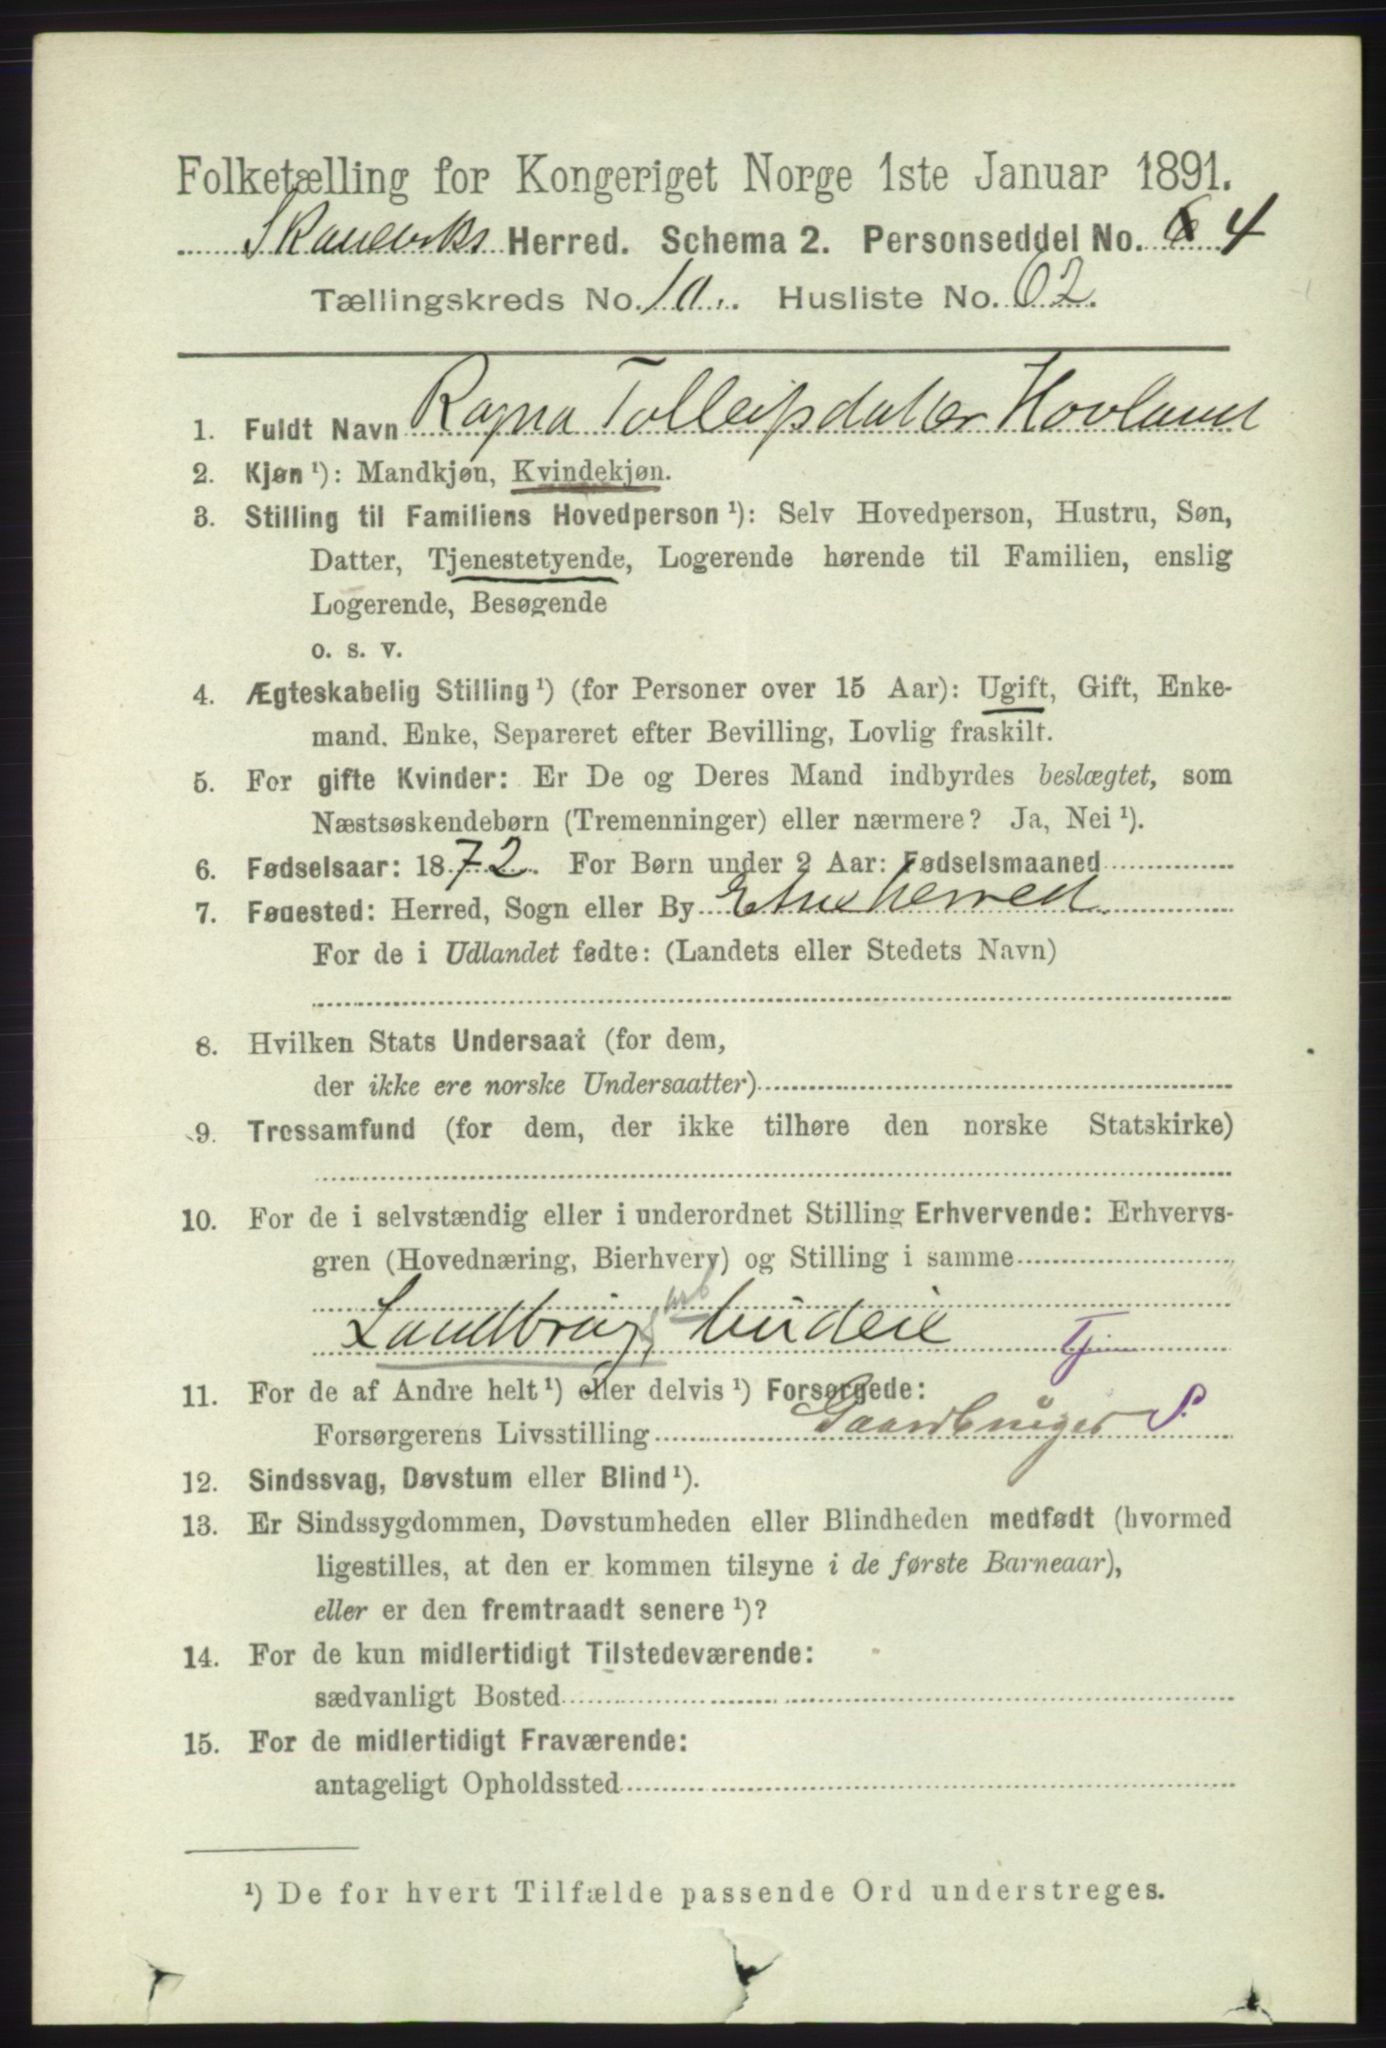 Folketælling for Kongeriget Norge 1ste Januar 1891.
Skaneviks Herred. Schema 2. Personseddel No. 6 4
Tællingskreds No. 10. Husliste No. 62.
1. Fuldt Navn Ragna Tolleifsdatter Hovland
2. Kjøn ¹): Mandkjøn, Kvindekjøn.
3. Stilling til Familiens Hovedperson ¹): Selv Hovedperson, Hustru, Søn,
Datter, Tjenestetyende, Logerende hørende til Familien, enslig
Logerende, Besøgende
o. s. v.
4. Ægteskabelig Stilling ¹) (for Personer over 15 Aar): Ugift, Gift, Enke-
mand, Enke, Separeret efter Bevilling, Lovlig fraskilt.
5. For gifte Kvinder: Er De og Deres Mand indbyrdes beslægtet, som
Næstsøskendebørn (Tremenninger) eller nærmere? Ja, Nei ¹).
6. Fødselsaar: 1872. For Børn under 2 Aar: Fødselsmaaned
7. Føuested: Herred, Sogn eller By Etne herred.
For de i Udlandet fødte: (Landets eller Stedets Navn)
8. Hvilken Stats Undersaat (for dem,
der ikke ere norske Undersaatter)
9. Trossamfund (for dem, der ikke tilhøre den norske Statskirke)
10. For de i selvstændig eller i underordnet Stilling Erhvervende: Erhvervs-
gren (Hovednæring, Bierhverv) og Stilling i samme
arb
Landbrug, budeie Tj
11. For de af Andre helt ¹) eller delvis ¹) Forsørgede:
Forsørgerens Livsstilling Gaardbruger S.
12. Sindssvag, Døvstum eller Blind ¹).
13. Er Sindssygdommen, Døvstumheden eller Blindheden medfødt (hvormed
ligestilles, at den er kommen tilsyne i de første Barneaar),
eller er den fremtraadt senere ¹)?
14. For de kun midlertidigt Tilstedeværende:
sædvanligt Bosted
15. For de midlertidigt Fraværende:
antageligt Opholdssted
¹) De for hvert Tilfælde passende Ord understreges.